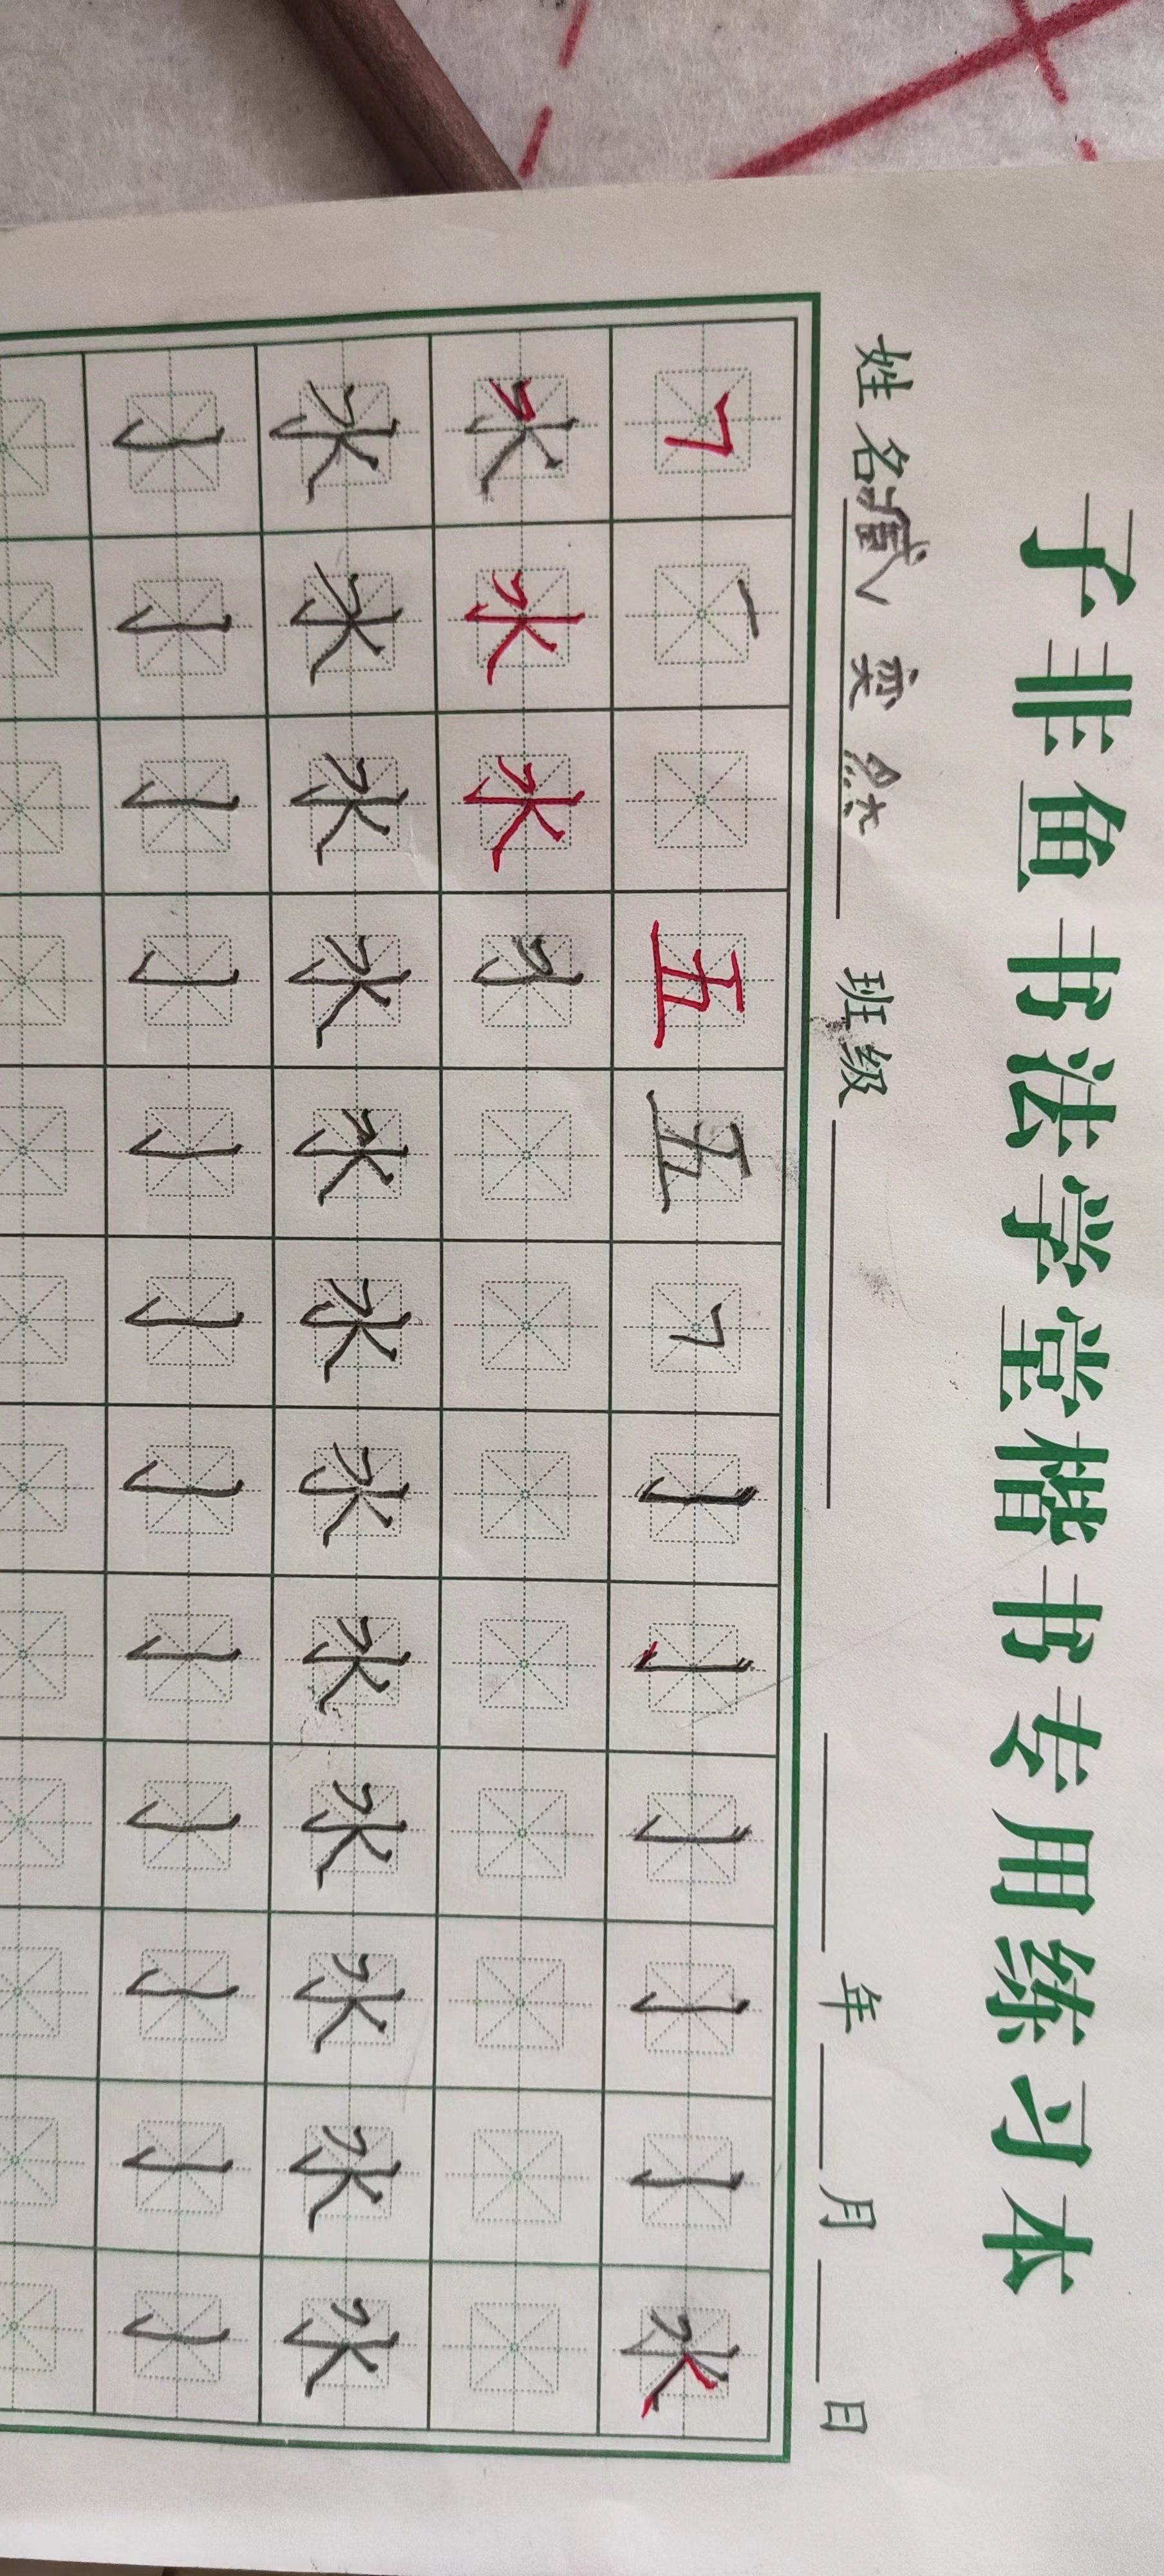 子非鱼书法学堂楷书专用练习本
姓名 奕然 班级 年 月 日
㇇ 一 五 五 ㇇ 亅 亅 亅 亅 亅 水
水 水 水
水 水 水 水 水 水 水 水 水 水 水 水
亅 亅 亅 亅 亅 亅 亅 亅 亅 亅 亅 亅